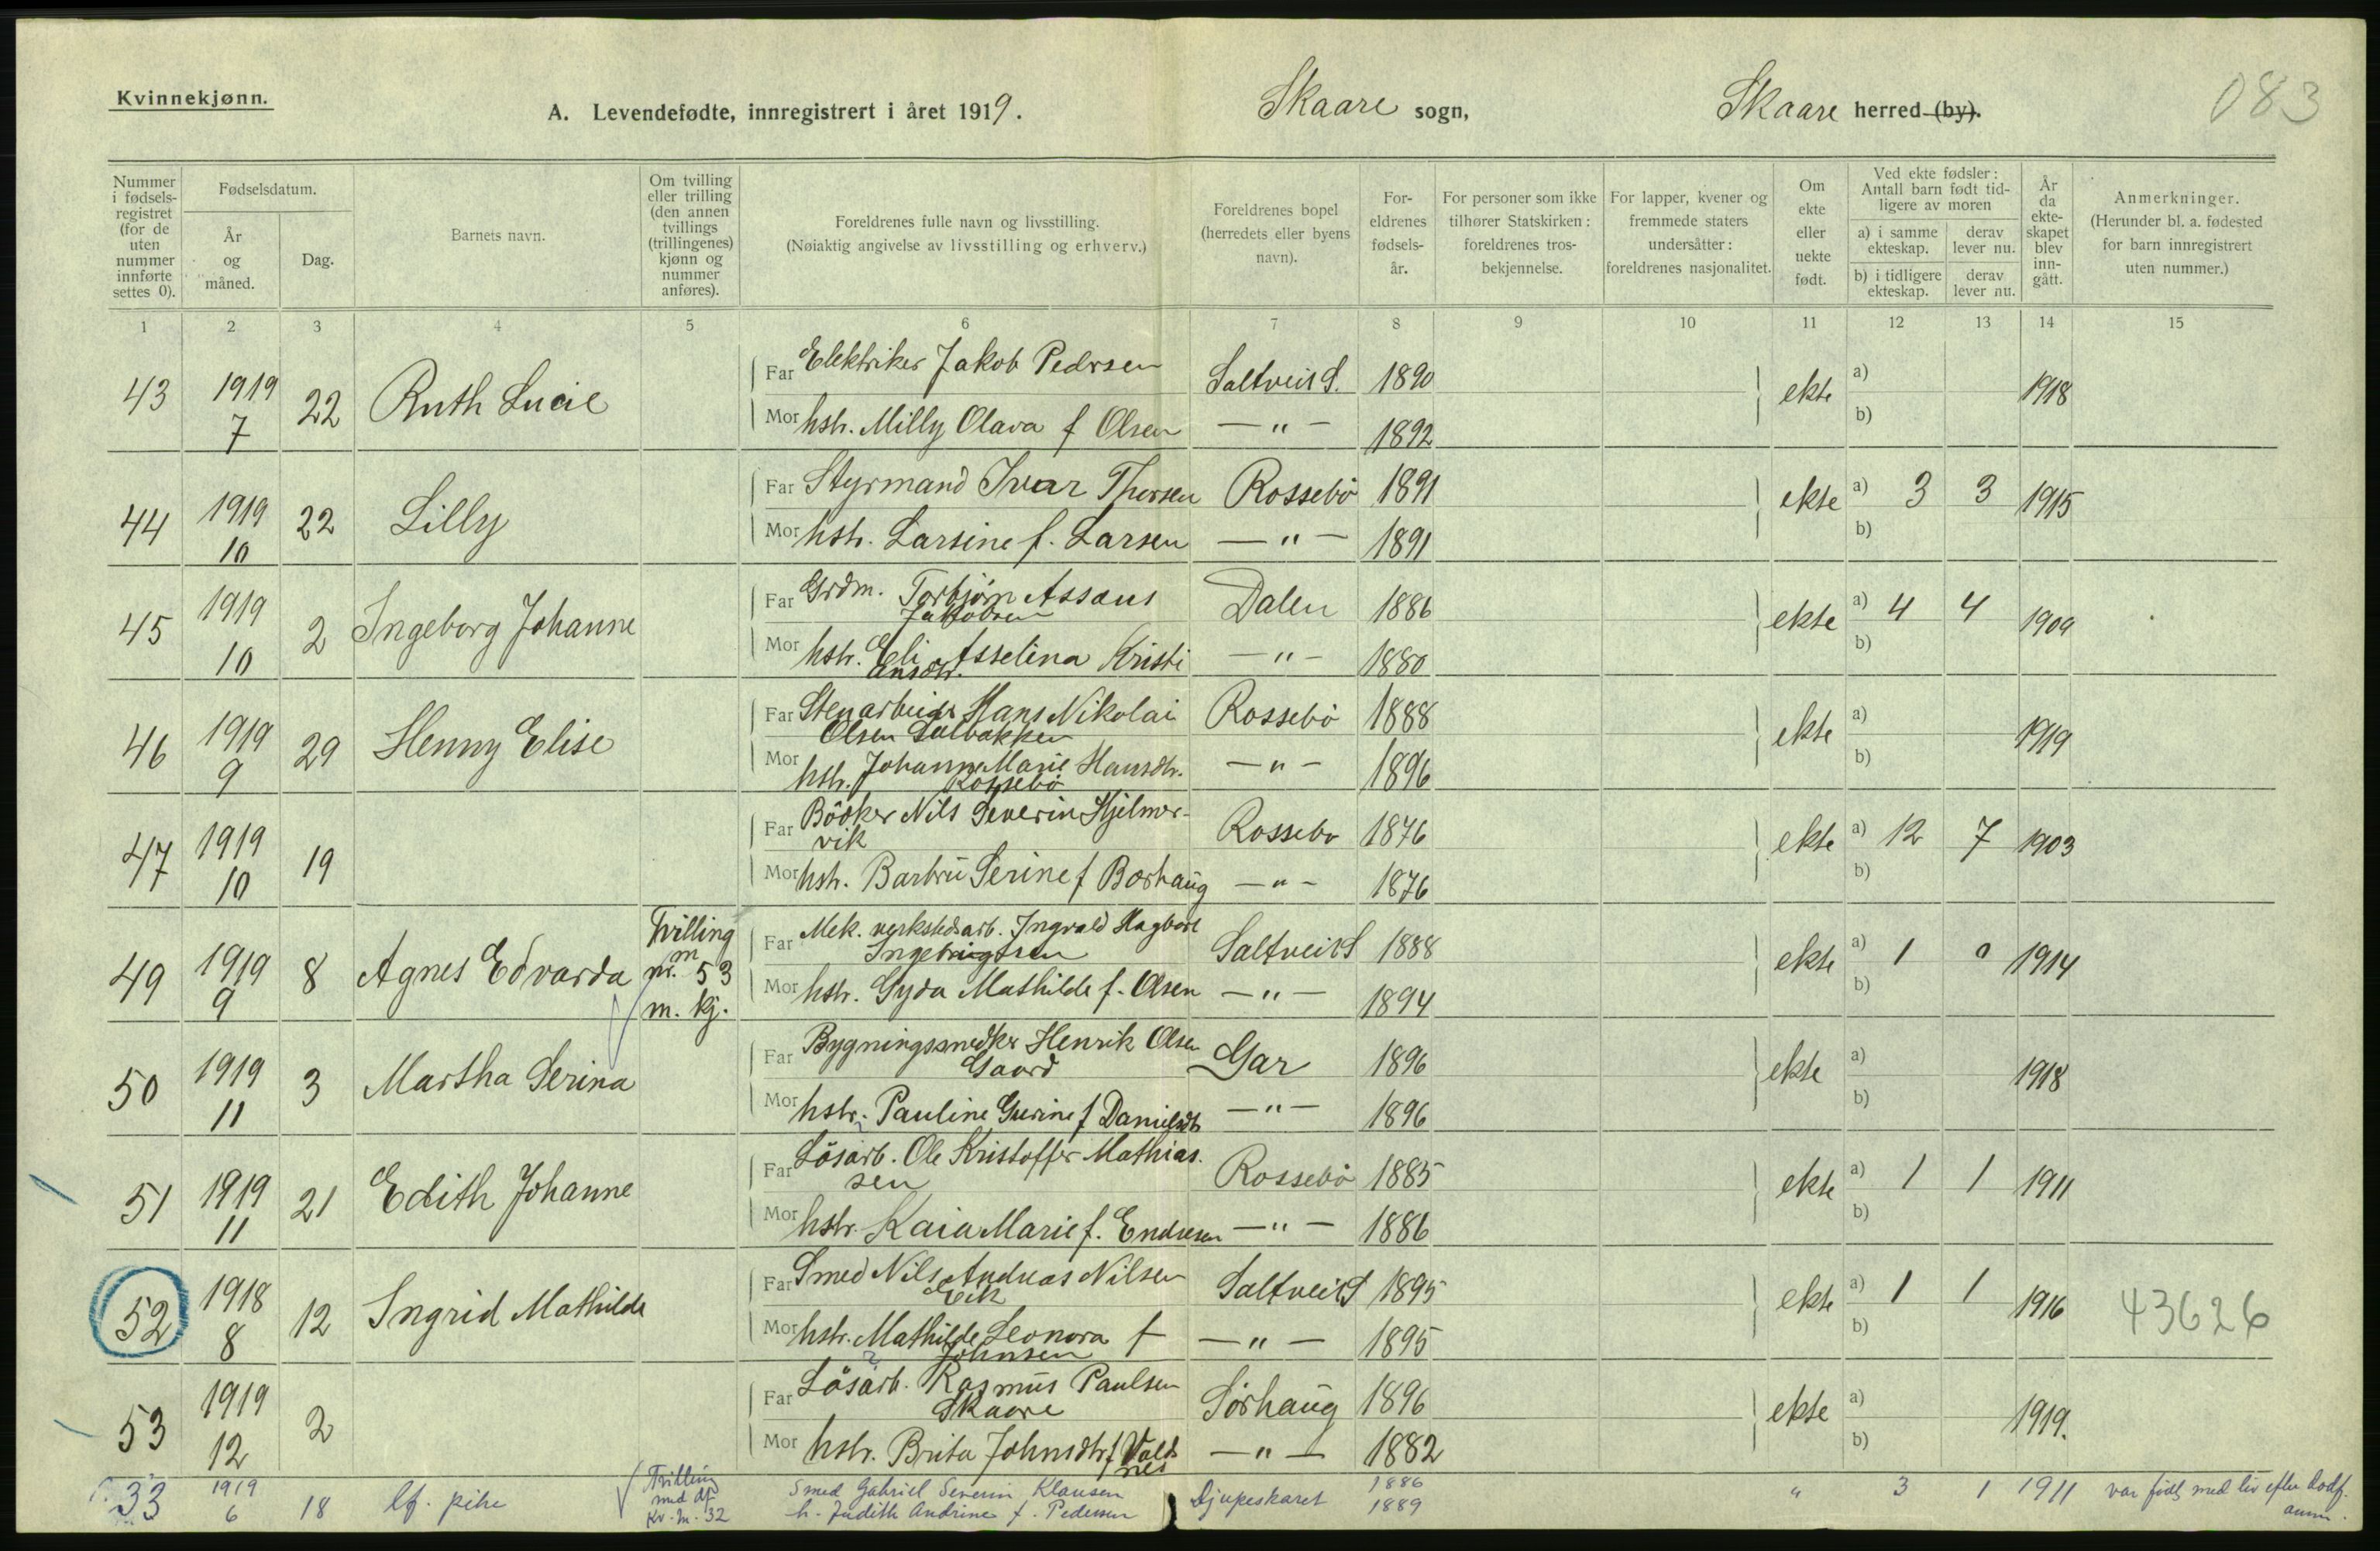 Kvinnekjønn.
A. Levendefødte, innregistrert i året 1919.
Skaare sogn,
Skaare herred (by).
083
Nummer i fødsels-registret (for de uten nummer innførte settes 0).
Fødselsdatum.
År og måned.
Dag.
Barnets navn.
Om tvilling eller trilling (den annen tvillings (trillingenes) kjønn og nummer anføres).
Foreldrenes fulle navn og livsstilling.
(Nøiaktig angivelse av livsstilling og erhverv.)
Foreldrenes bopel (herredets eller byens navn).
For-eldrenes fødsels-år.
For personer som ikke tilhører Statskirken: foreldrenes tros-bekjennelse.
For lapper, kvener og fremmede staters undersåtter: foreldrenes nasjonalitet.
Om ekte eller uekte født.
Ved ekte fødsler: Antall barn født tid-ligere av moren
a) i samme ekteskap.
derav lever nu.
b) i tidligere ekteskap.
derav lever nu.
År da ekte-skapet blev inn-gått.
Anmerkninger.
(Herunder bl. a. fødested for barn innregistrert uten nummer.)
1 2 3 4 5 6 7 8 9 10 11 12 13 14 15
43 1919 7 22 Ruth Lucie
Far Elektriker Jakob Pedersen Saltveit S. 1890 ekte a) 1918
Mor hstr. Milly Olava f Olsen — " — 1892 b)
44 1919 10 22 Lilly
Far Styrmand Ivar Thorsen Rossebø 1891 ekte a) 3 3 1915
Mor hstr. Larsine f. Larsen — " — 1891 b)
45 1919 10 2 Ingeborg Johanne
Far Grdm. Torbjørn Assaus Jakobsen Dalen 1886 ekte a) 4 4 1909
Mor hstr. Eli Asselina Kristi Ansdtr. — " — 1880 b)
46 1919 9 29 Henny Elise
Far Stenarbeider Hans Nikolai Olsen Solbakken Rossebø 1888 ekte a) 1919
Mor hstr. Johanne Marie Hansdtr. Rossebø — " — 1896 b)
47 1919 10 19
Far Bödker Nils Severin Hjelmer-vik Rossebø 1876 ekte a) 12 7 1903
Mor hstr. Barbru Serine f Borhaug — " — 1876 b)
49 1919 9 8 Agnes Edvarda
Tvilling m nr. 53 m. kj.
Far Mek. verkstedsarb. Ingvald Hagbart Ingebrigtsen Saltveit S 1888 ekte a) 1 0 1914
Mor hstr. Gyda Mathilde f. Olsen — " — 1894 b)
50 1919 11 3 Martha Serina
Far Bygningssnedker Henrik Olsen Gaard Gar 1896 ekte a) 1918
Mor hstr. Pauline Gurine f Danielsdtr — " — 1896 b)
51 1919 11 21 Edith Johanne
Far Lösarb. Ole Kristoffer Mathias.sen Rossebø 1885 ekte a) 1 1 1911
Mor hstr. Kaia Marie f. Endresen — " — 1886 b)
52 1918 8 12 Ingrid Mathilde
Far Smed Nils Andreas Nilsen Eik Saltveit S 1895 ekte a) 1 1 1916 43626
Mor hstr. Mathilde Leonora f Johnsen — " — 1895 b)
53 1919 12 2
Far Lösarb. Rasmus Paulsen Skaare Sörhaug 1896 ekte a) 1919.
Mor hstr. Brita Johnsdtr f Valdnes — " — 1882 b)
33 1919 6 18 lf. pike
Tvilling med df. Kv. M. 32
Smed Gabriel Severin Klausen Djupeskaret 1886 " 3 1 1911 var født med liv efter dødf. anm.
h. Judith Andrine f. Pedersen 1889